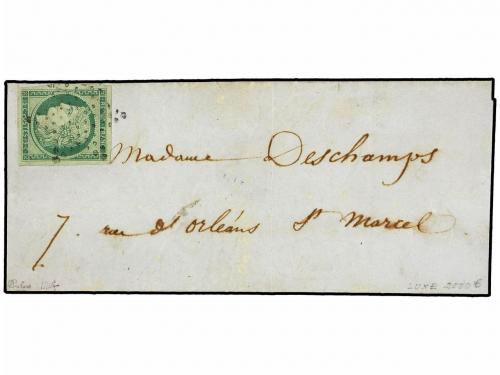 Madame Deschamps
7. rue d'orléans St Marcel
LUXE 2000 €